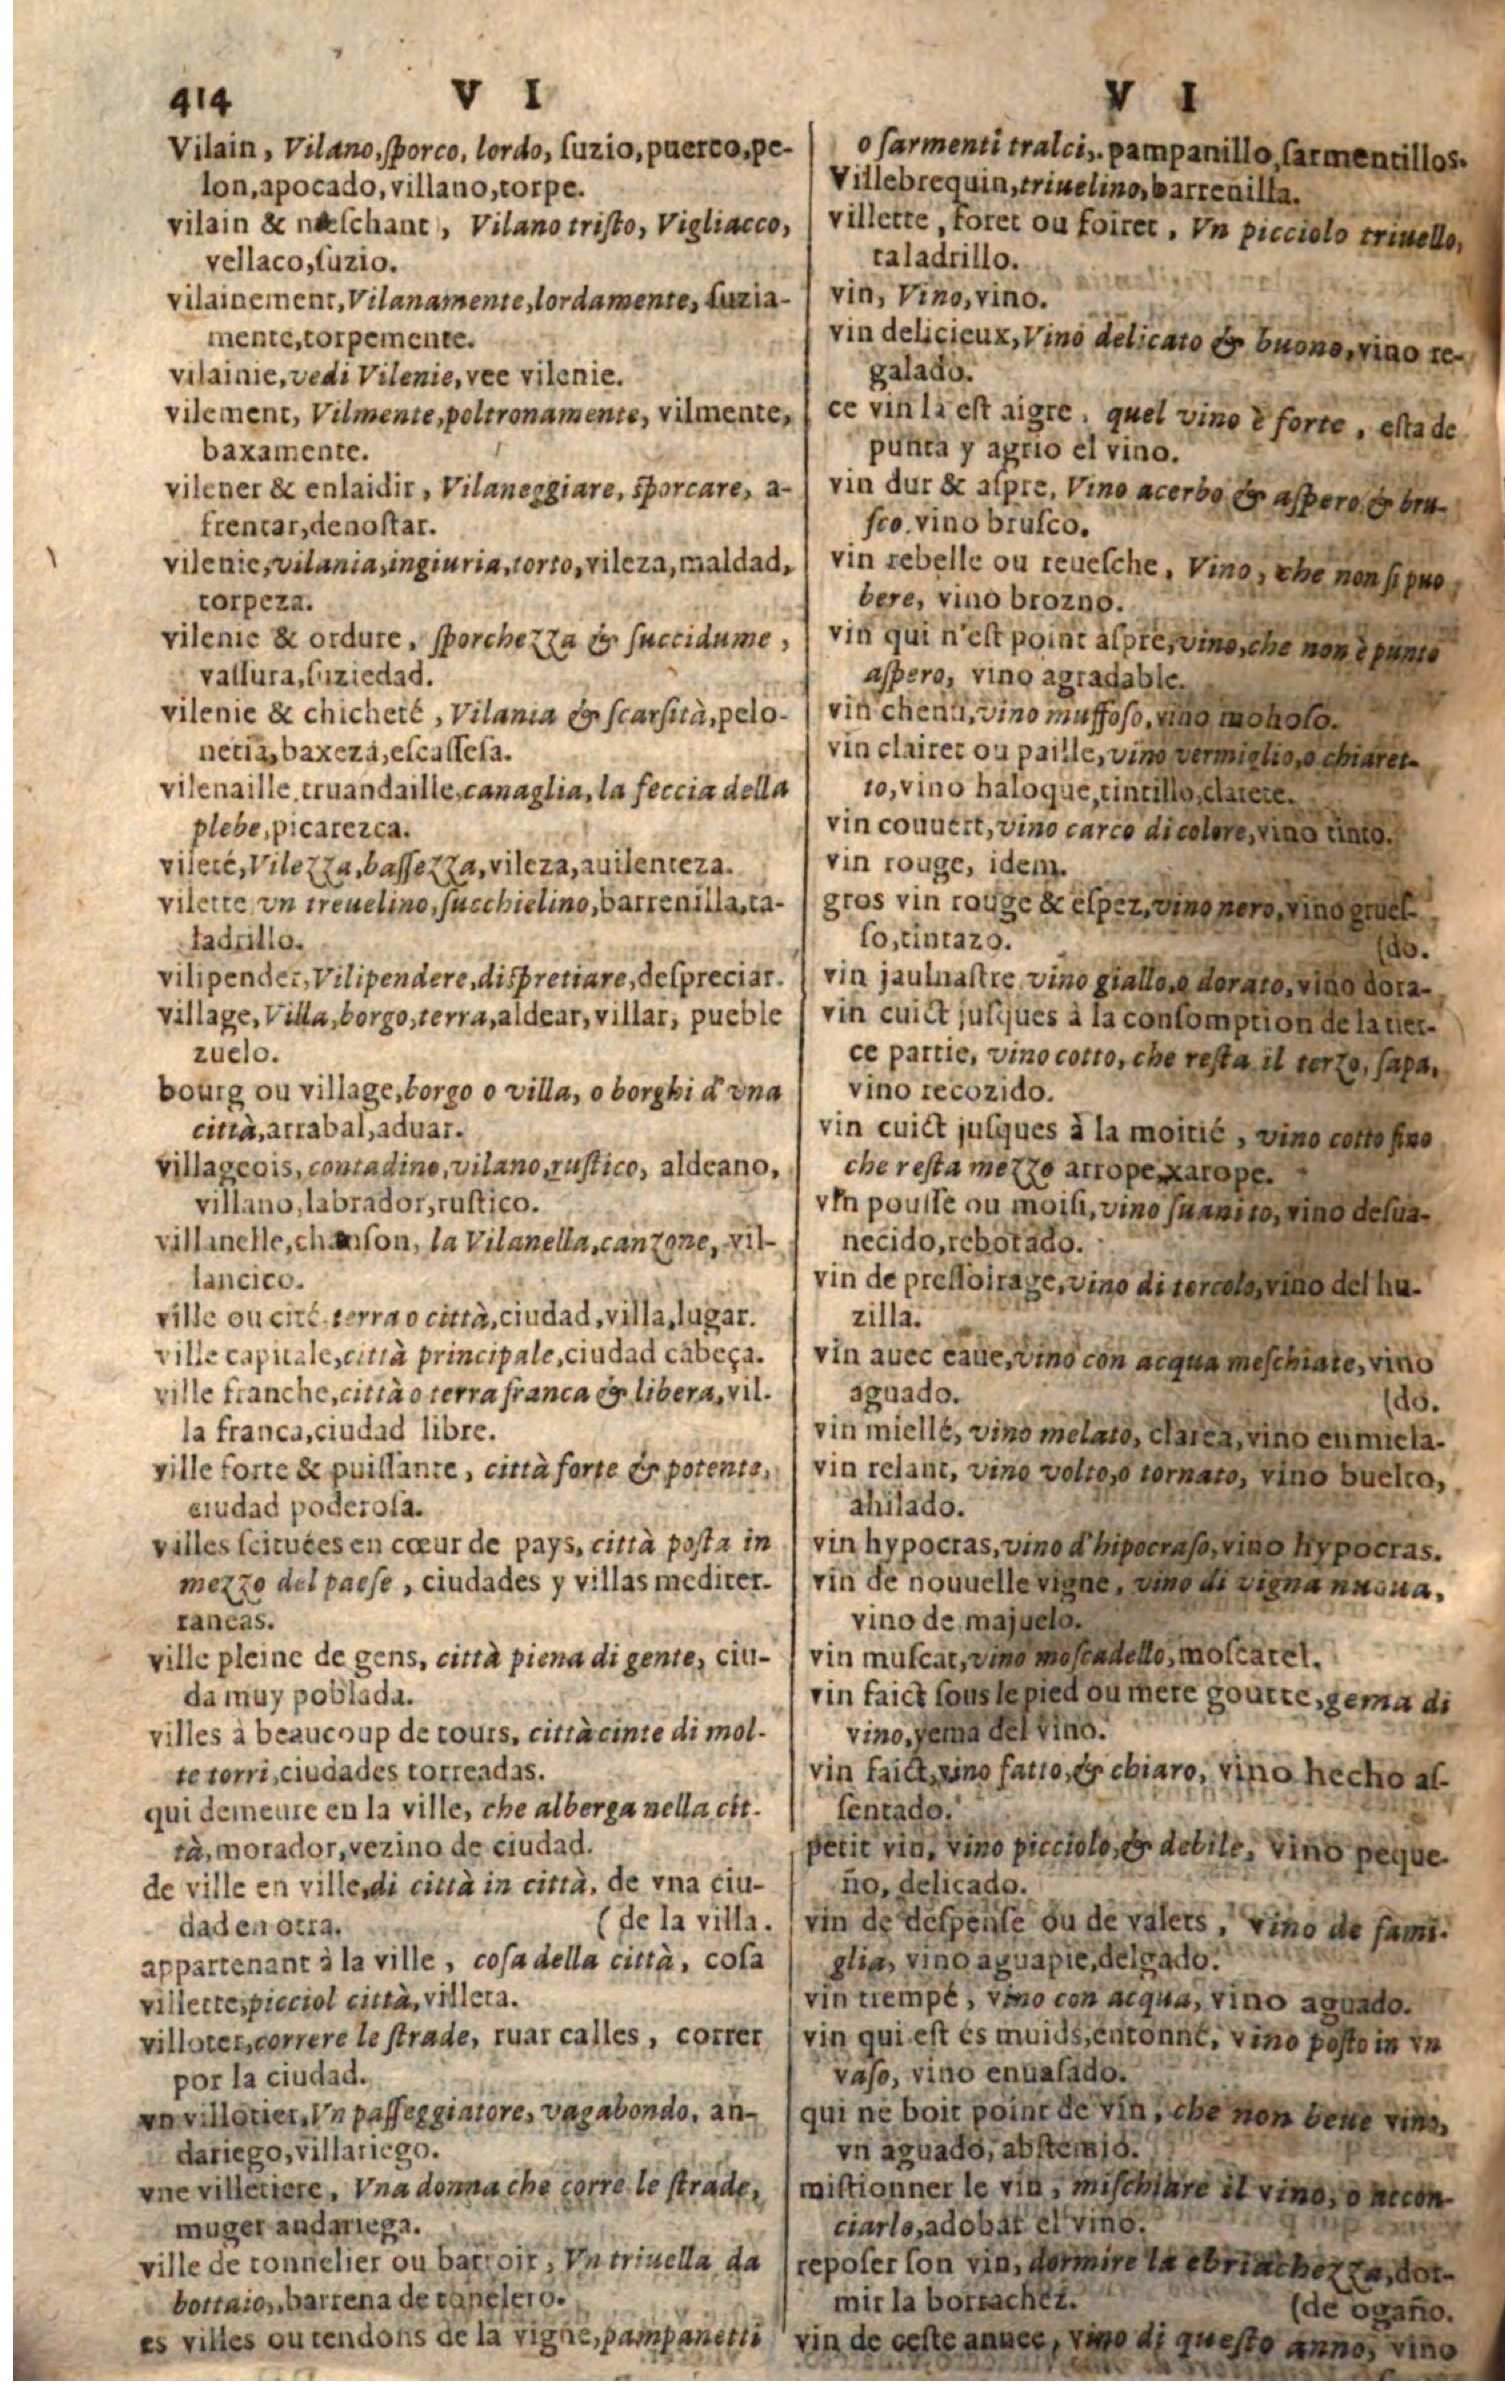 414 V I
Vilain, Vilano, ſporco, lordo, ſuzio, puerco, pe-
lon, apocado, villano, torpe.
vilain & meſchant, Vilano triſto, Vigliacco,
vellaco, ſuzio.
vilainement, Vilanamente, lordamente, ſuzia-
mente, torpemente.
vilainie, vedi Vilenie, vee vilenie.
vilement, Vilmente, poltronamente, vilmente,
baxamente.
vilener & enlaidir, Vilaneggiare, ſporcare, a-
frentar, denoſtar.
vilenie, vilania, ingiuria, torto, vileza, maldad,
torpeza.
vilenie & ordure, ſporchezza & ſuccidume,
vaſſura, ſuziedad.
vilenie & chicheté, Vilania & ſcarſità, pelo-
neria, baxeza, eſcaſſeſa.
vilenaille, truandaille, canaglia, la feccia della
plebe, picarezca.
vileté, Vilezza, baſſezza, vileza, auilenteza.
vilette, vn treuelino, ſucchielino, barrenilla, ta-
ladrillo.
vilipender, Vilipendere, diſpretiare, deſpreciar.
village, Villa, borgo, terra, aldear, villar, pueble
zuelo.
bourg ou village, borgo o villa, o borghi d'vna
città, arrabal, aduar.
villageois, contadino, vilano, ruſtico, aldeano,
villano, labrador, ruſtico.
villanelle, chanſon, la Vilanella, canzone, vil-
lancico.
ville ou cité, terra o città, ciudad, villa, lugar.
ville capitale, città principale, ciudad cabeça.
ville franche, città o terra franca & libera, vil-
la franca, ciudad libre.
ville forte & puiſſante, città forte & potente,
ciudad poderoſa.
villes ſcituées en cœur de pays, città poſta in
mezzo del paeſe, ciudades y villas mediter-
raneas.
ville pleine de gens, città piena di gente, ciu-
da muy poblada.
villes à beaucoup de tours, città cinte di mol-
te torri, ciudades torreadas.
qui demeure en la ville, che alberga nella cit-
tà, morador, vezino de ciudad.
de ville en ville, di città in città, de vna ciu-
dad en otra. (de la villa.
appartenant à la ville, coſa della città, coſa
villette, picciol città, villeta.
villoter, correre le ſtrade, ruar calles, correr
por la ciudad.
vn villotier, Vn paſſeggiatore, vagabondo, an-
dariego, villariego.
vne villetiere, Vna donna che corre le ſtrade,
muger andariega.
ville de tonnelier ou barroir, Vn triuella da
bottaio, barrena de tonelero.
es villes ou tendons de la vigne, pampanetti
V I
o ſarmenti tralci, pampanillo, ſarmentillos.
Villebrequin, triuelino, barrenilla.
villette, foret ou foiret, Vn picciolo triuello,
taladrillo.
vin, Vino, vino.
vin delicieux, Vino delicato & buono, vino re-
galado.
ce vin là eſt aigre, quel vino è forte, eſta de
punta y agrio el vino.
vin dur & aſpre, Vino acerbo & aſpero & bru-
ſco, vino bruſco.
vin rebelle ou reueſche, Vino, che non ſi puo
bere, vino brozno.
vin qui n'eſt point aſpre, vino, che non è punto
aſpero, vino agradable.
vin chenu, vino muffoſo, vino mohoſo.
vin clairet ou paille, vino vermiglio, o chiaret-
to, vino haloque, tintillo, clarete.
vin couuert, vino carco di colore, vino tinto.
vin rouge, idem.
gros vin rouge & eſpez, vino nero, vino grueſ-
ſo, tintazo. (do.
vin jaulnaſtre, vino giallo, o dorato, vino dora-
vin cuict juſques à la conſomption de la tier-
ce partie, vino cotto, che reſta il terzo, ſapa,
vino recozido.
vin cuict juſques à la moitié, vino cotto fino
che reſta mezzo arrope, xarope.
vin pouſſé ou moiſi, vino ſuanito, vino deſua-
necido, rebotado.
vin de preſſoirage, vino di torcolo, vino del hu-
zilla.
vin auec eaue, vino con acqua meſchiate, vino
aguado. (do.
vin miellé, vino melato, clarea, vino enmiela-
vin relant, vino volto, o tornato, vino buelto,
ahilado.
vin hypocras, vino d'hipocraſo, vino hypocras.
vin de nouuelle vigne, vino di vigna nuoua,
vino de majuelo.
vin muſcat, vino moſcadello, moſcatel.
vin faict ſous le pied ou mere goutte, gema di
vino, yema del vino.
vin faict, vino fatto, & chiaro, vino hecho aſ-
ſentado.
petit vin, vino picciolo, & debile, vino peque-
ño, delicado.
vin de deſpenſe ou de valets, vino de fami-
glia, vino aguapie, delgado.
vin trempé, vino con acqua, vino aguado.
vin qui eſt és muids, entonné, vino poſto in vn
vaſo, vino enuaſado.
qui ne boit point de vin, che non beue vino,
vn aguado, abſtemio.
miſtionner le vin, miſchiare il vino, o accon-
ciarlo, adobar el vino.
repoſer ſon vin, dormire la ebriachezza, dor-
mir la borrachez. (de ogaño.
vin de ceſte annee, vino di queſto anno, vino